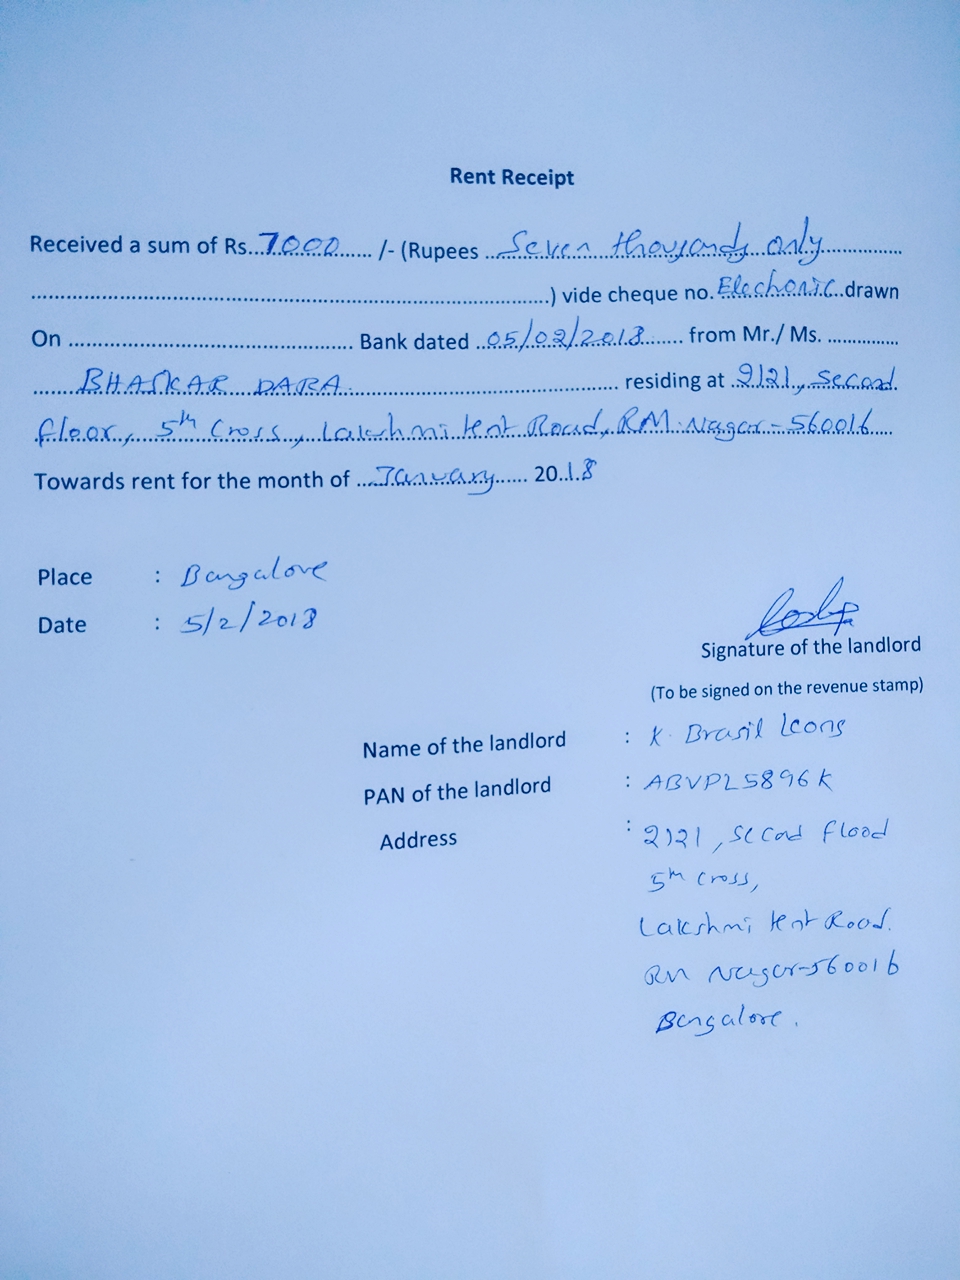 Rent Receipt
Received a sum of Rs...7000....... /- (Rupees ...Seven thousands only...................
........................................................................................) vide cheque no. Electronic..drawn
On .................................................. Bank dated ..05/02/2018....... from Mr./ Ms. .............
........BHASKAR DARA................................................ residing at .2/21, Second
floor, 5th Cross, Lakshmi tent Road, RM Nagar-560016
Towards rent for the month of ...January...... 20.18
Place : Bangalore
Date : 5/2/2018
Signature of the landlord
(To be signed on the revenue stamp)
Name of the landlord : K. Brasil Leons
PAN of the landlord : ABVPL5896K
Address : 2/21, Second flood
5th Cross,
Lakshmi tent Road.
RM Nagar-560016
Bangalore.